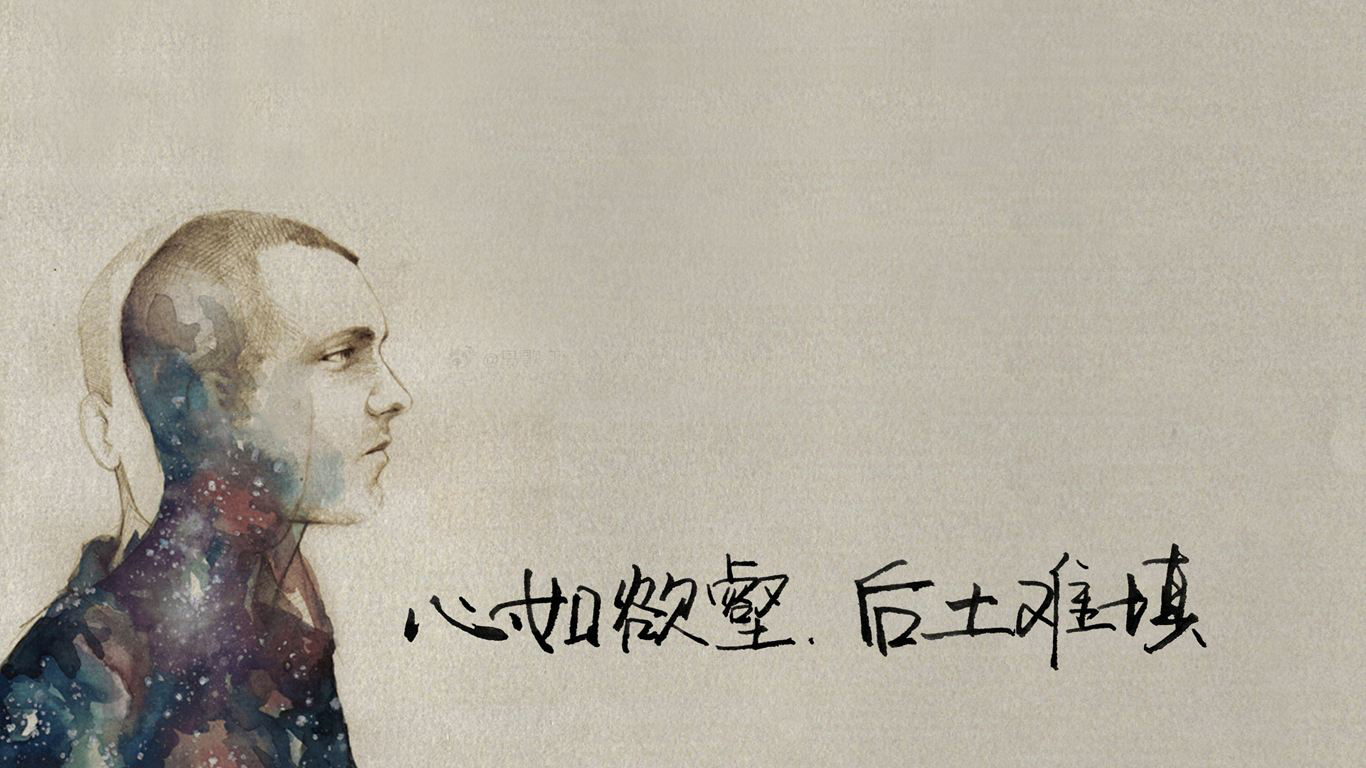 心如欲壑.后土难填